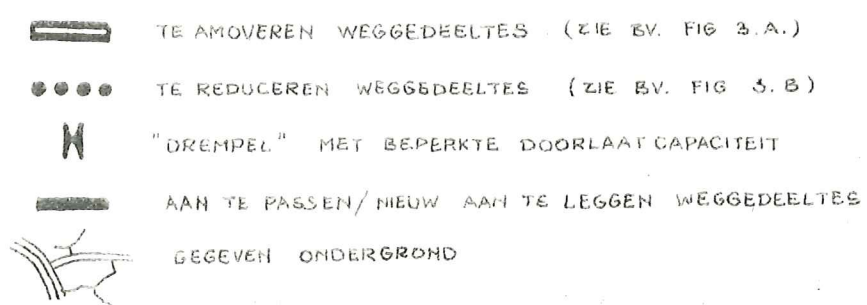 TE AMOVEREN WEGGEDEELTES (ZIE BV. FIG 3.A.)
TE REDUCEREN WEGGEDEELTES (ZIE BV. FIG 3.B)
"DREMPEL" MET BEPERKTE DOORLAATCAPACITEIT
AAN TE PASSEN/NIEUW AAN TE LEGGEN WEGGEDEELTES
GEGEVEN ONDERGROND